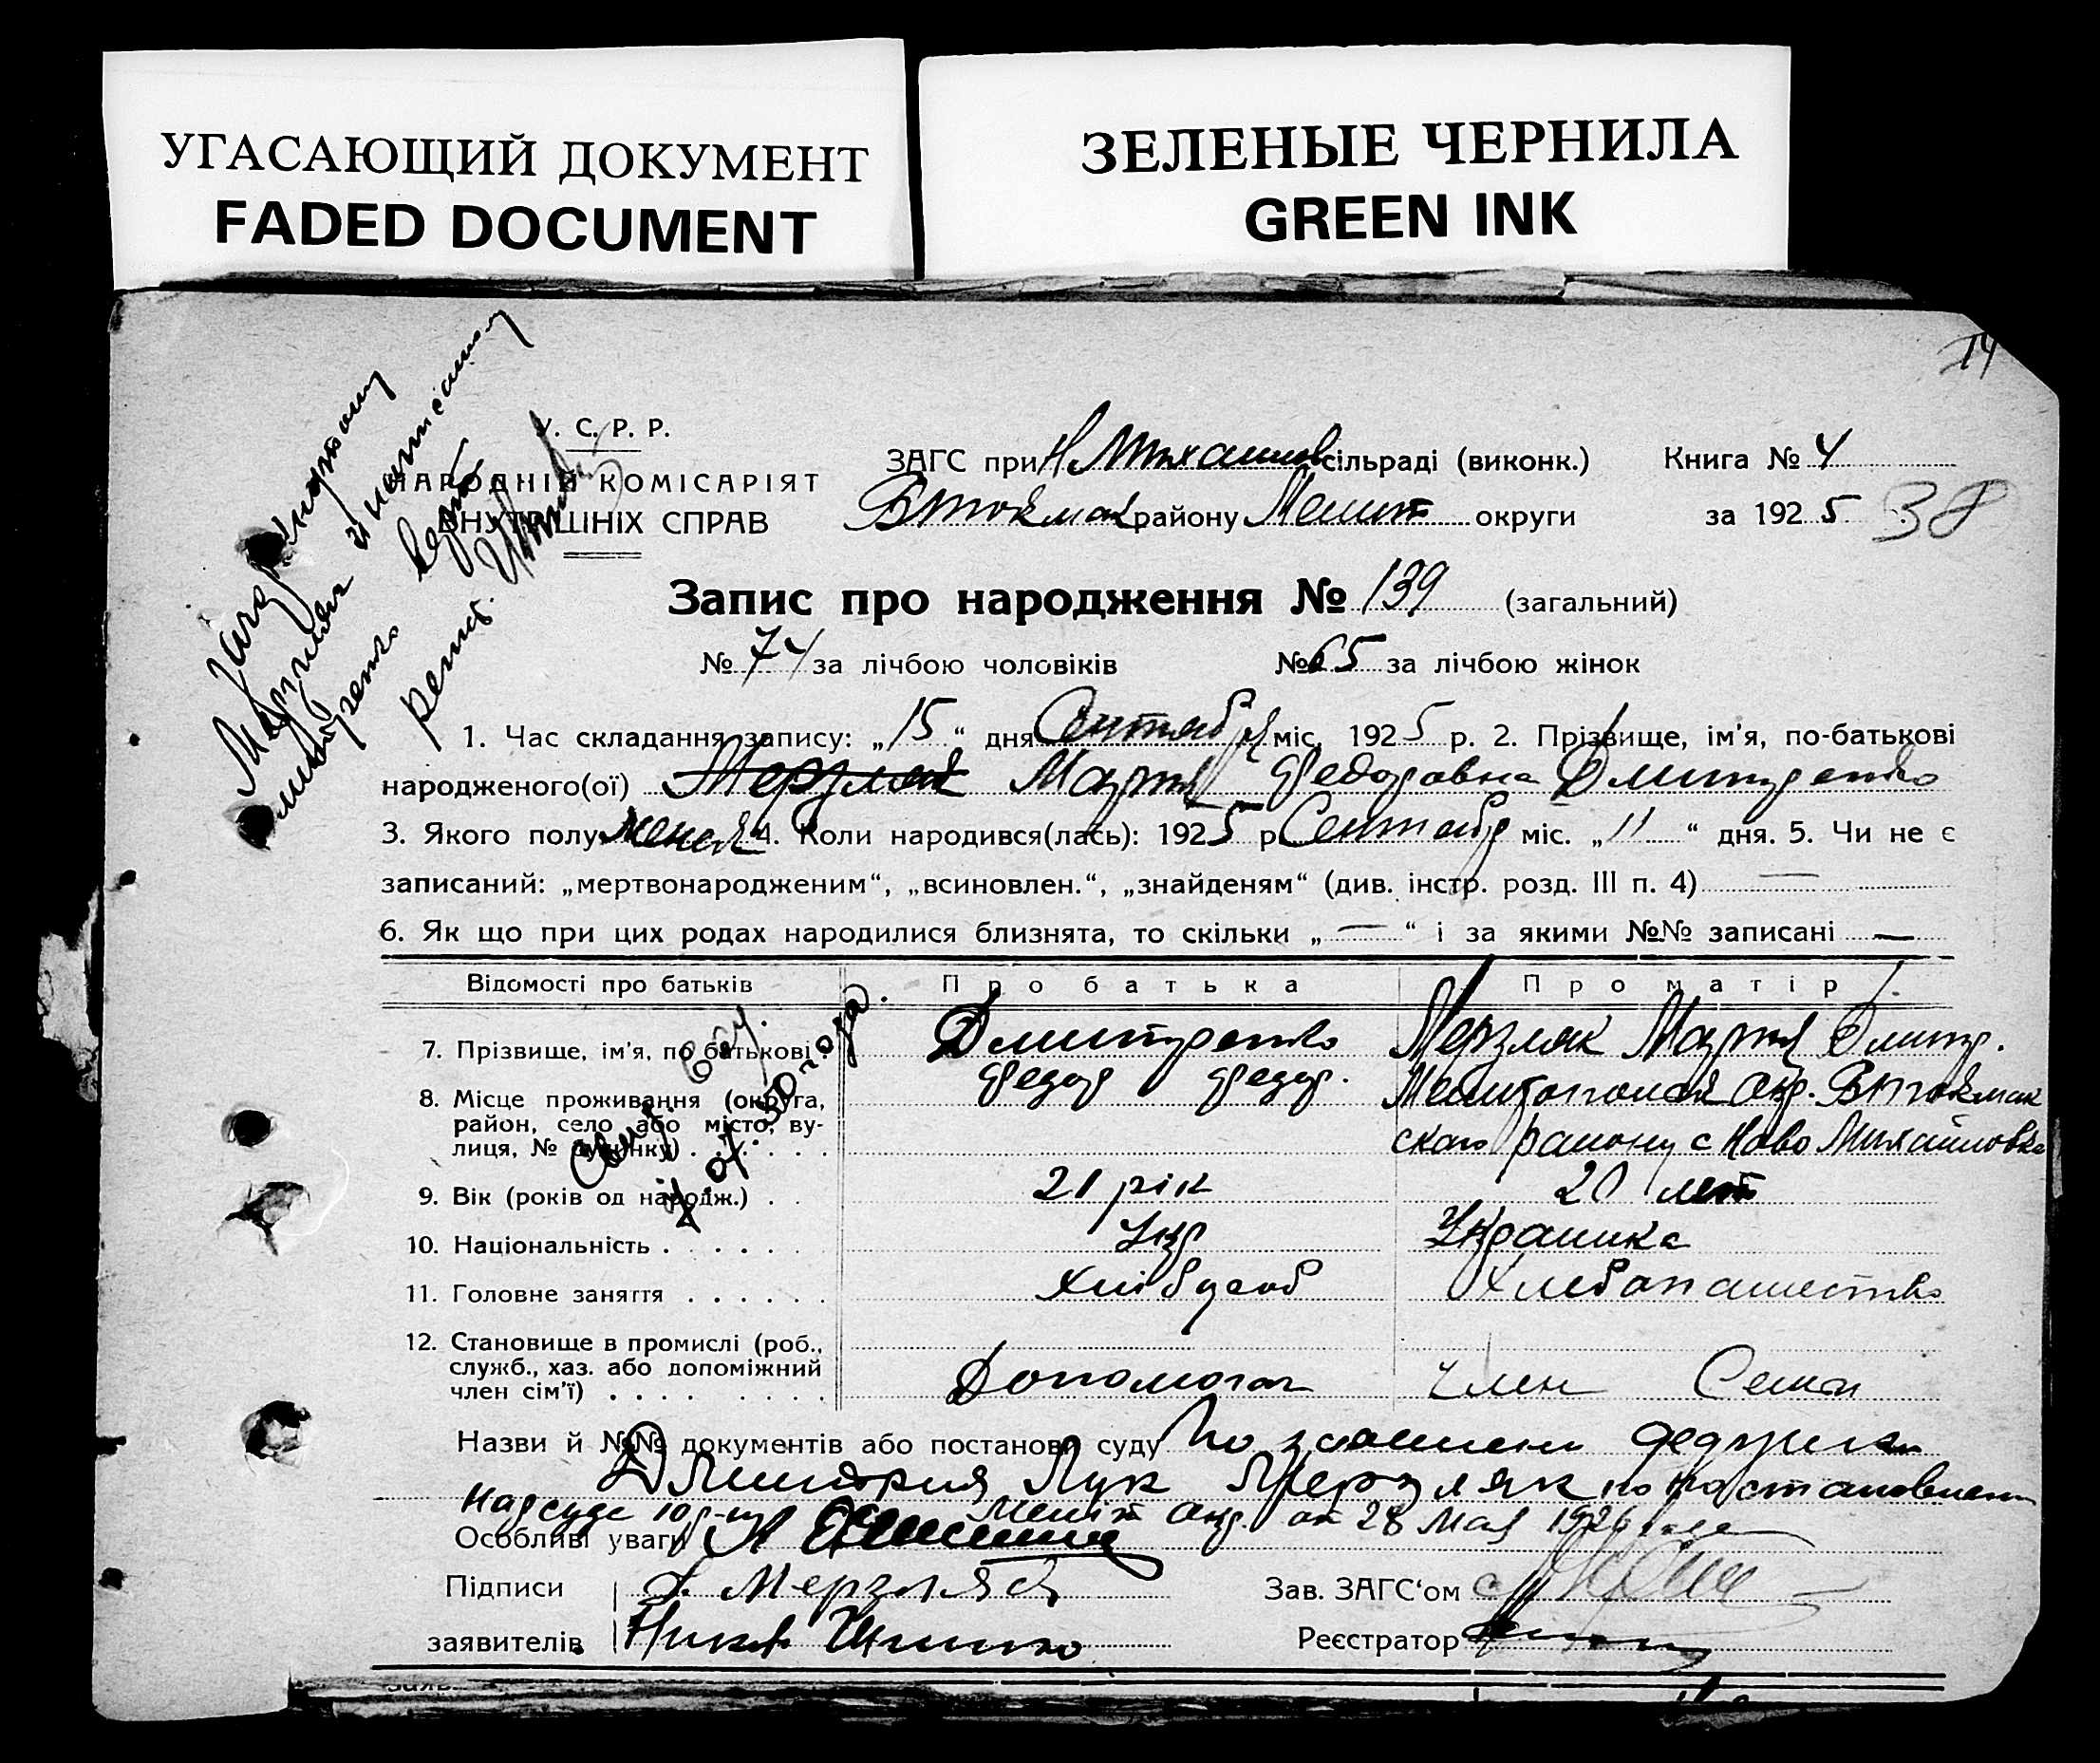 УГАСАЮЩИЙ ДОКУМЕНТ
FADED DOCUMENT
ЗЕЛЕНЫЕ ЧЕРНИЛА
GREEN INK
14
У. С. Р. Р.
НАРОДНІЙ КОМІСАРІЯТ
ВНУТРІШНІХ СПРАВ
ЗАГС при Н Михайлов сільраді (виконк.) Книга № 4
ВТокмак району Меліт округи за 1925
38
Запис про народження № 139 (загальний)
№ 74 за лічбою чоловіків № 65 за лічбою жінок
1. Час складання запису: „15“ дня Сентября міс. 1925 р. 2. Прізвище, ім'я, по-батькові
народженого(ої) Мерзляк Мария Федоровна Дмитренко
3. Якого полу женск 4. Коли народився(лась): 1925 р Сентябр міс. „11“ дня. 5. Чи не є
записаний: „мертвонародженим“, „всиновлен.“, „знайденям“ (див. інстр. розд. III п. 4) —
6. Як що при цих родах народилися близнята, то скільки „—“ і за якими №№ записані —
Відомості про батьків Про батька Про матір
7. Прізвище, ім'я, по батькові Дмитренко Мерзляк Мария Дмитр.
Федор Федор.
8. Місце проживання (округа, район, село або місто, вулиця, № будинку) Мелитопольск окр. ВТокмак
ского району с Ново Михайловка
9. Вік (років од народж.) 21 рік 20 лет
10. Національність Укр Украинка
11. Головне заняття Хлібороб Хлебопашество
12. Становище в промислі (роб., служб., хаз. або допоміжний член сім'ї) Допомогач Член Семьи
Назви й №№ документів або постанови суду По заявлен дедушки
Дмитрия Лук Мерзляк по постановлен
Нарсуда Меліт окр. от 28 мая 1926 года
Особливі уваги
Підписи Д. Мерзляк Зав. ЗАГС‘ом
заявителів Реєстратор